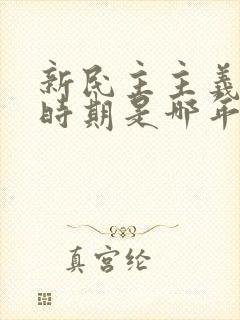 新民主主義
時期是哪年
真宮纶